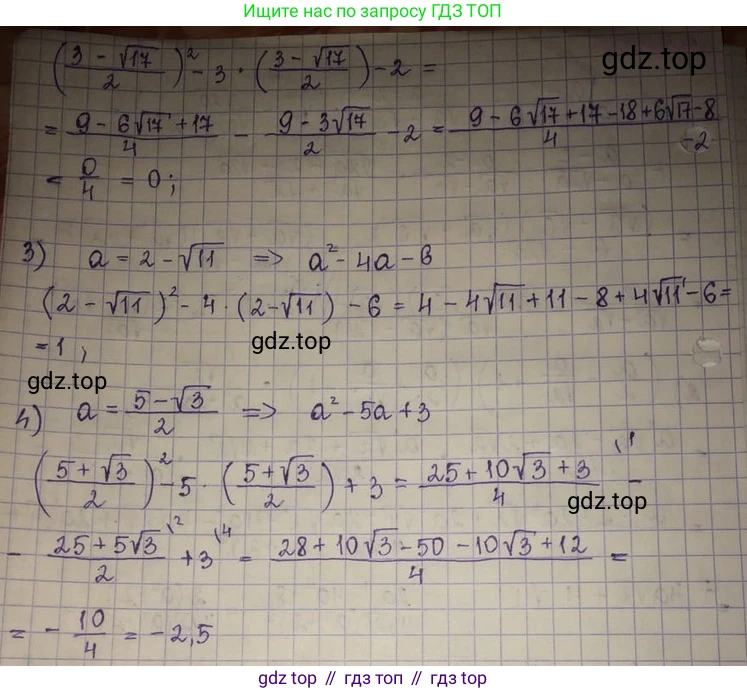 Ищите нас по запросу ГДЗ ТОП
((3 - √17)/2)² - 3 · ((3 - √17)/2) - 2 =
gdz.top
= (9 - 6√17 + 17)/4 - (9 - 3√17)/2 - 2 = (9 - 6√17 + 17 - 18 + 6√17 - 8)/4
-2
= 0/4 = 0;
3) a = 2 - √11 => a² - 4a - 6
(2 - √11)² - 4 · (2 - √11) - 6 = 4 - 4√11 + 11 - 8 + 4√11 - 6 =
= 1;
gdz.top
gdz.top
4) a = (5 - √3)/2 => a² - 5a + 3
((5 + √3)/2)² - 5 · ((5 + √3)/2) + 3 = (25 + 10√3 + 3)/4 \1 -
gdz.top
- (25 + 5√3)/2 \2 + 3 \4 = (28 + 10√3 - 50 - 10√3 + 12)/4 =
= - 10/4 = - 2,5
gdz.top // гдз топ // gdz top // гдз.top